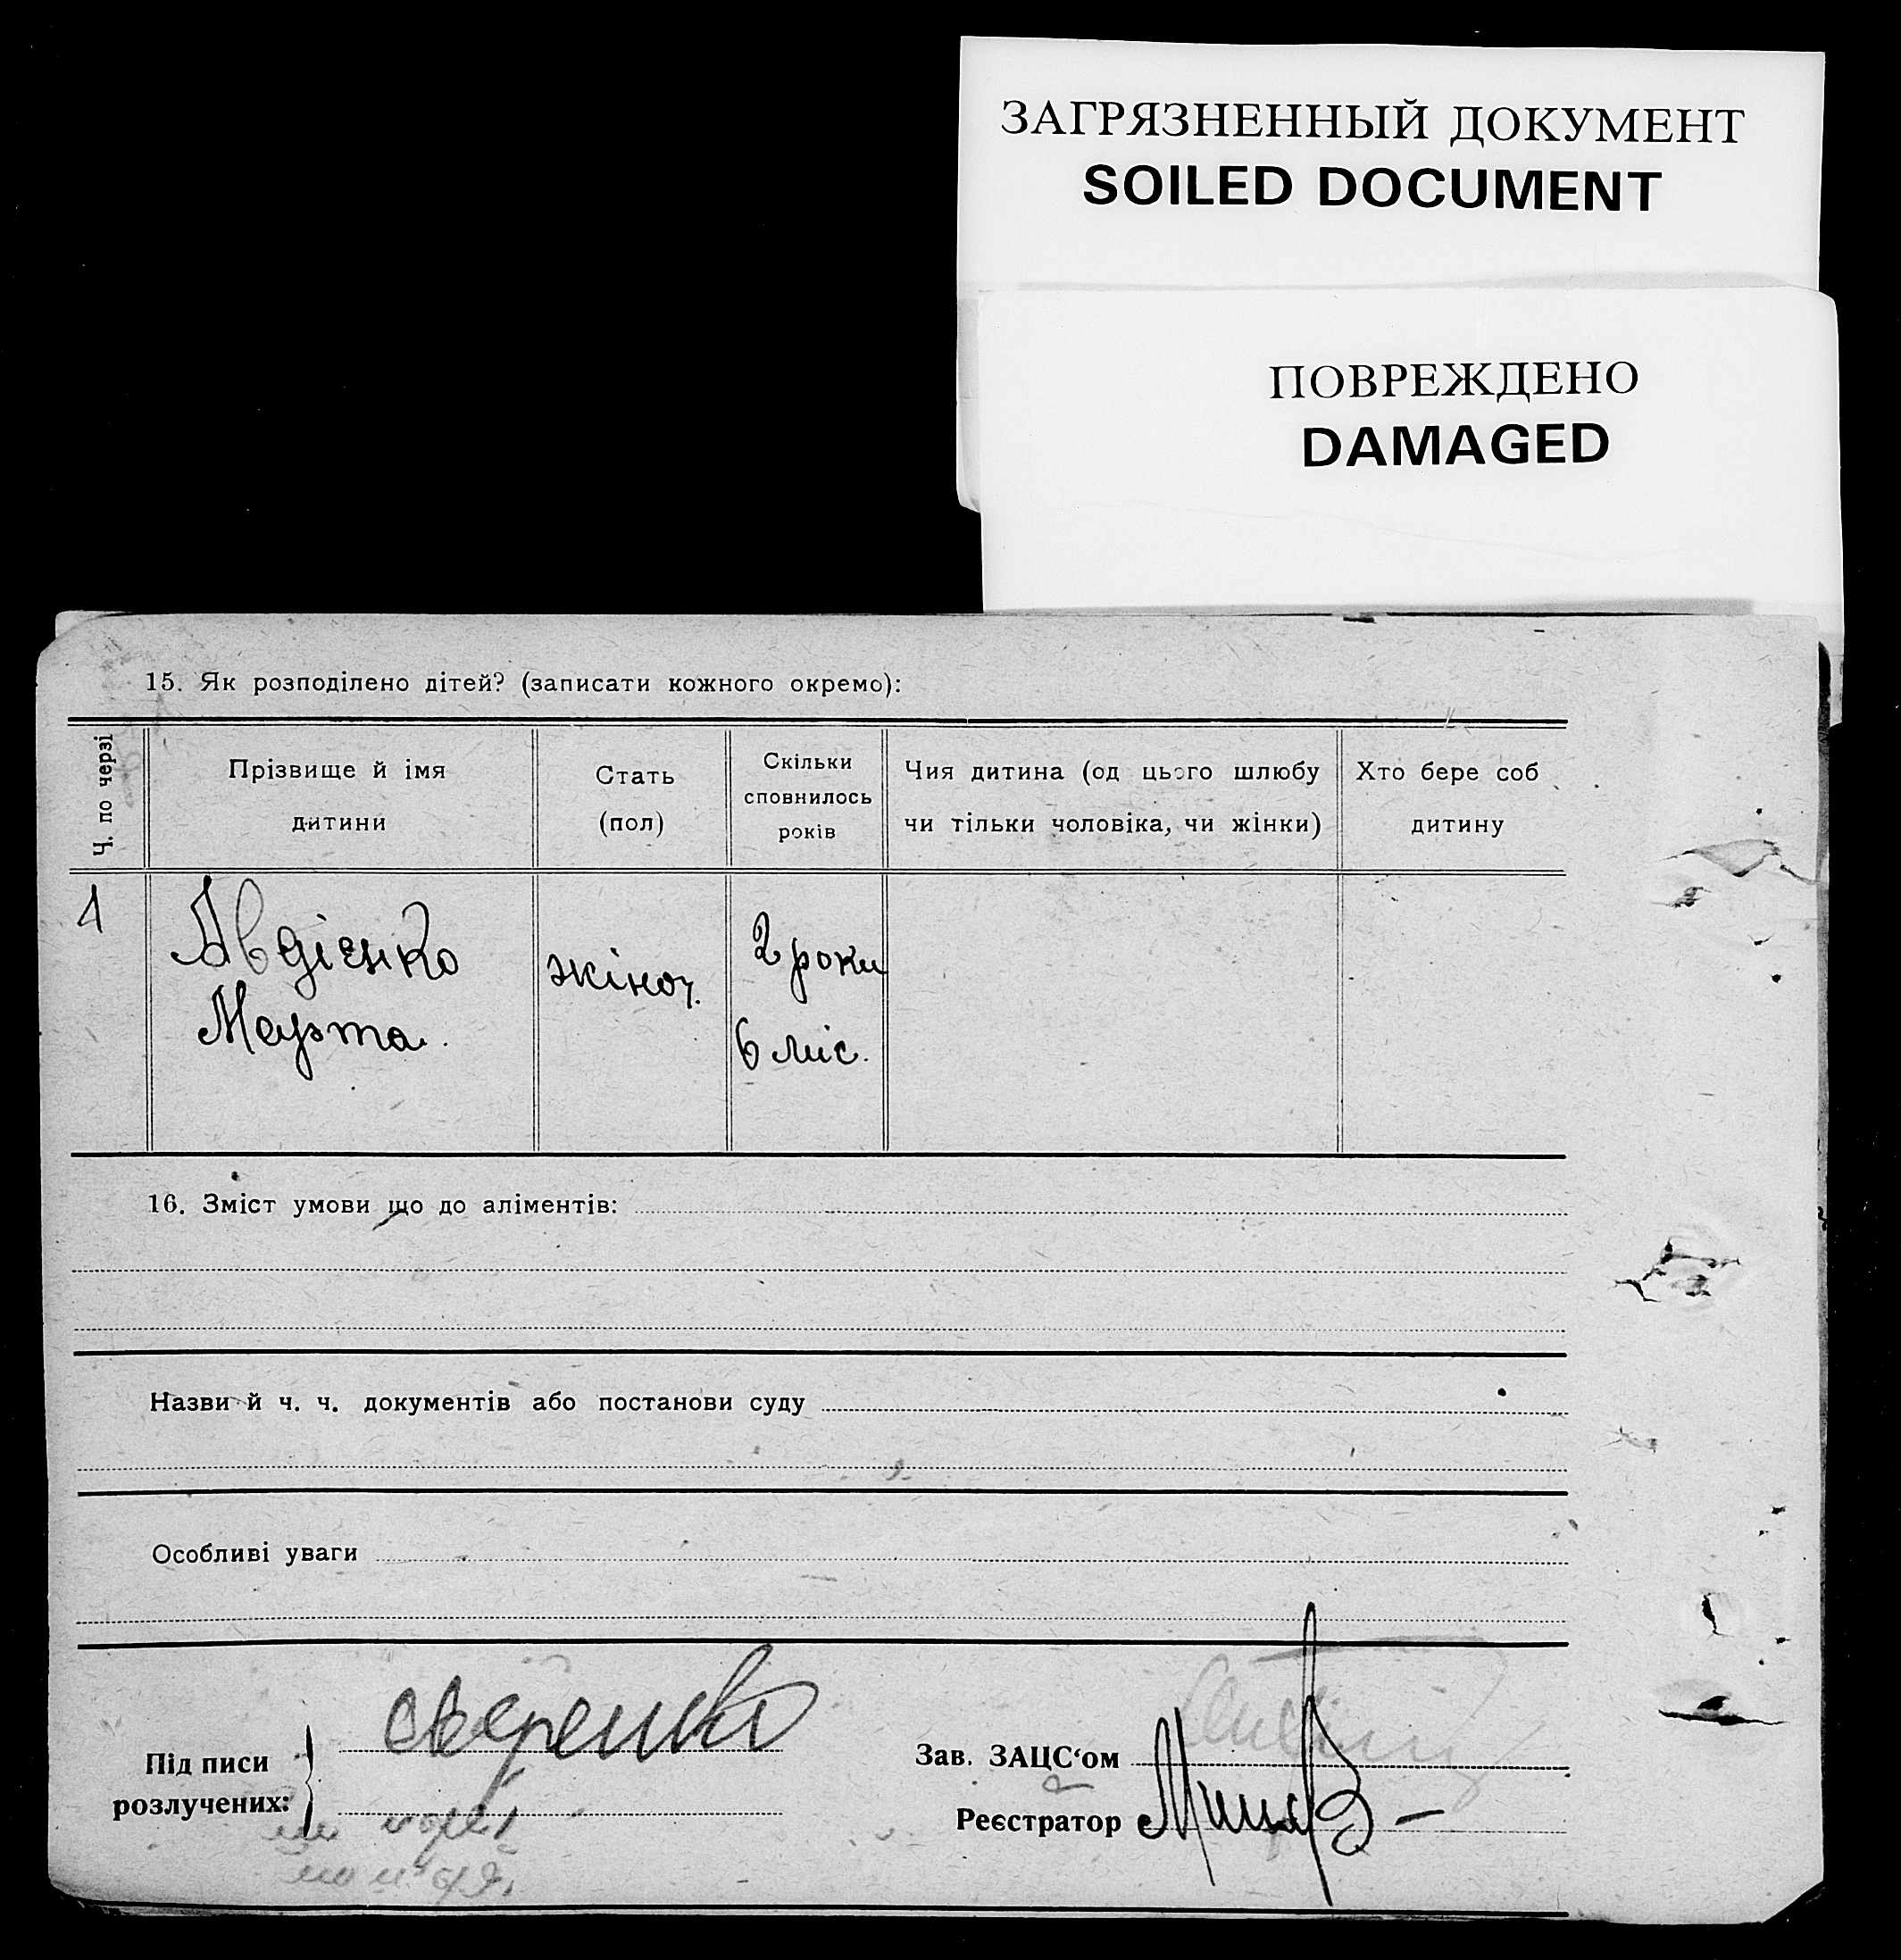 ЗАГРЯЗНЕННЫЙ ДОКУМЕНТ
SOILED DOCUMENT
ПОВРЕЖДЕНО
DAMAGED
15. Як розподілено дітей? (записати кожного окремо):
Ч. по черзі
Прізвище й імя
дитини
Стать
(пол)
Скільки
сповнилось
років
Чия дитина (од цього шлюбу
чи тільки чоловіка, чи жінки)
Хто бере соб
дитину
1
Авдієнко
Марта.
жіноч.
2 роки
6 міс.
16. Зміст умови що до аліментів:
Назви й ч. ч. документів або постанови суду
Особливі уваги
Під писи
розлучених:
Зав. ЗАЦС‘ом
Реєстратор